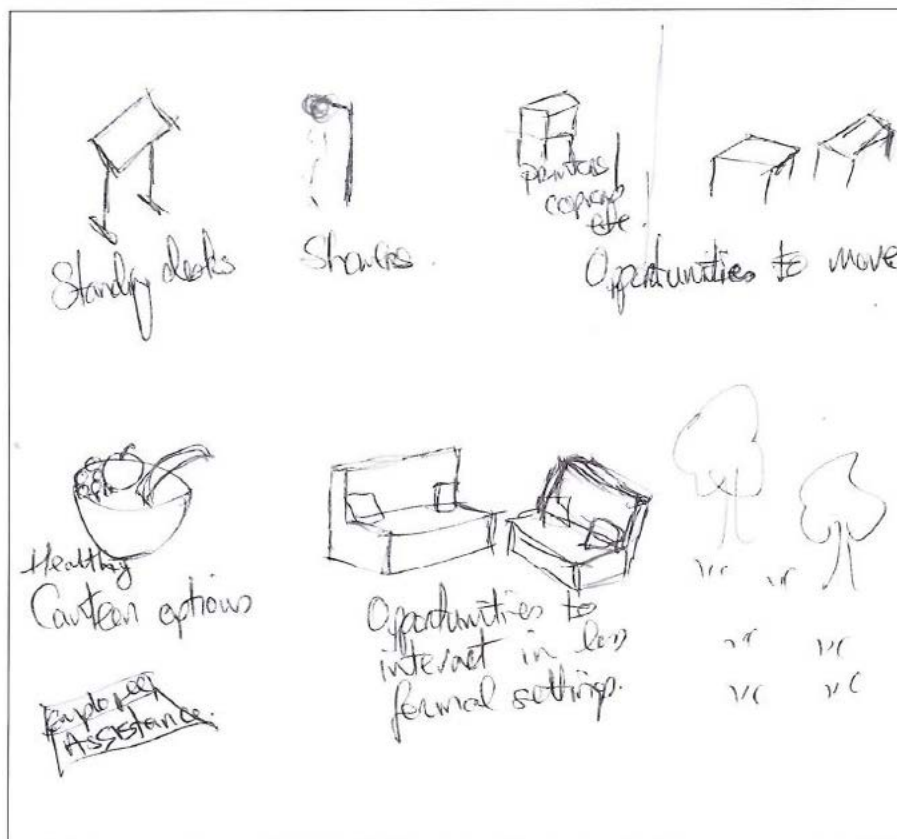 Standing desks
Showers.
printers
copiers
etc.
Opportunities to move
Healthy
Canteen options
Opportunities to
interact in less
formal settings.
Employee
Assistance.